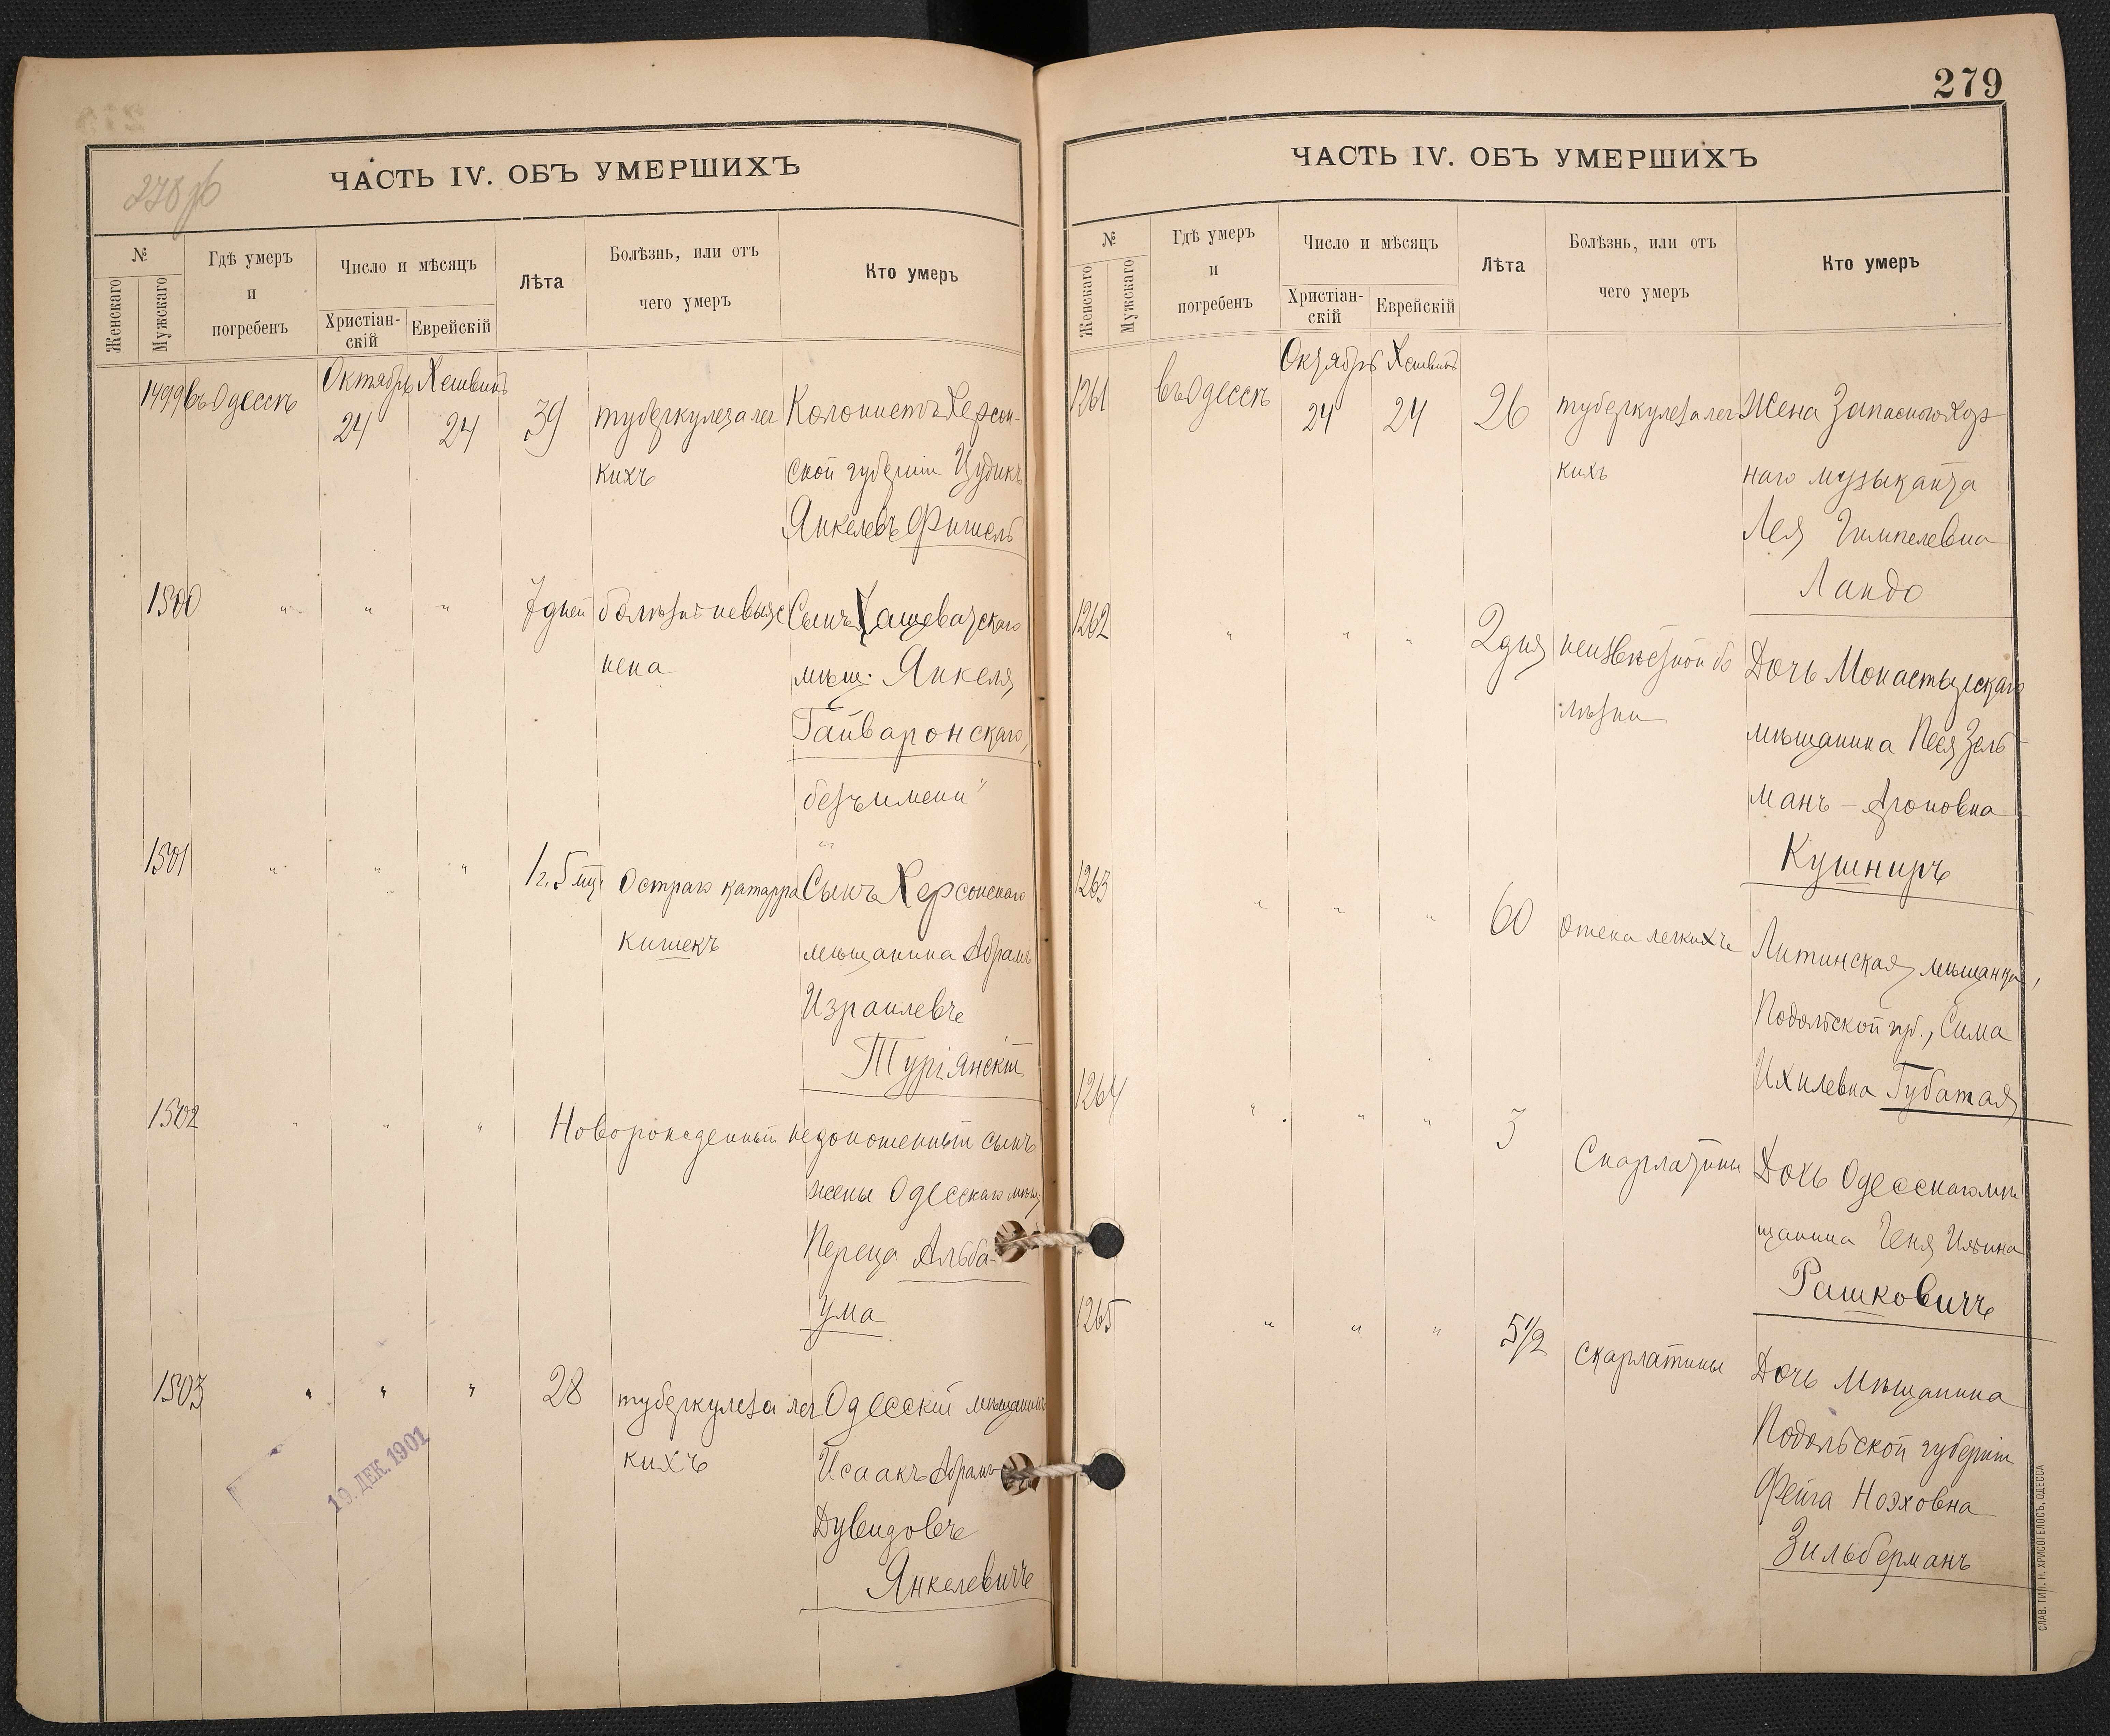 278 об
ЧАСТЬ IV. ОБЪ УМЕРШИХЪ
№
Женскаго
Мужскаго
Гдѣ умеръ
и
погребенъ
Число и мѣсяцъ
Христіан-
скій
Еврейскій
Лѣта
Болѣзнь, или отъ
чего умеръ
Кто умеръ
1499 въ Одессѣ Октябрь 24 Хешвинъ 24 39 туберкулеза лег Колонистъ Херсон-
кихъ ской губерніи Цудикъ
Янкелевъ Фигиель
1500 " " " 7 дней болѣзнь невыяс Сынъ Хащеватскаго
нена мѣщ. Янкеля
Гайваронскаго,
безъ имени"
1501 " " " 1 г. 5 мц. Остраго катарра Сынъ Херсонскаго
кишекъ мѣщанина Абрамъ
Израилевъ
Тургянскій
1502 " " " Новорожденный недоношенный сынъ
жены Одесскаго мѣщ.
Переца Альба-
ума
1503 " " " 28 туберкулеза лег Одесскій мѣщанинъ
кихъ Исаакъ Абрамъ
Дувидовъ
Янкелевичъ
19. ДЕК. 1901
279
ЧАСТЬ IV. ОБЪ УМЕРШИХЪ
№
Женскаго
Мужскаго
Гдѣ умеръ
и
погребенъ
Число и мѣсяцъ
Христіан-
скій
Еврейскій
Лѣта
Болѣзнь, или отъ
чего умеръ
Кто умеръ
1261 въ Одессѣ Октябрь 24 Хешвинъ 24 26 туберкулеза лег Жена Запаснаго Хор
кихъ наго музыканта
Лея Гимпелевна
Ландо
1262 " " " 2 дня неизвѣстной бо Дочь Монастырскаго
лѣзни мѣщанина Песя Зель
манъ - Ароновна
Кушниръ
1263 " " " 60 отека легкихъ Литинская мѣщанка,
Подольской губ., Сима
Ихилевна Губатая
1264 " " " 3 Скарлатины Дочь Одесскаго мѣ
щанина Геня
Рашковичъ
1265 " " " 5 1/2 скарлатины Дочь мѣщанина
Подольской губерніи
Фейга Нояховна
Зильберманъ
СЛАВ. ТИП. Н. ХРИСОГЕЛОСЪ, ОДЕССА